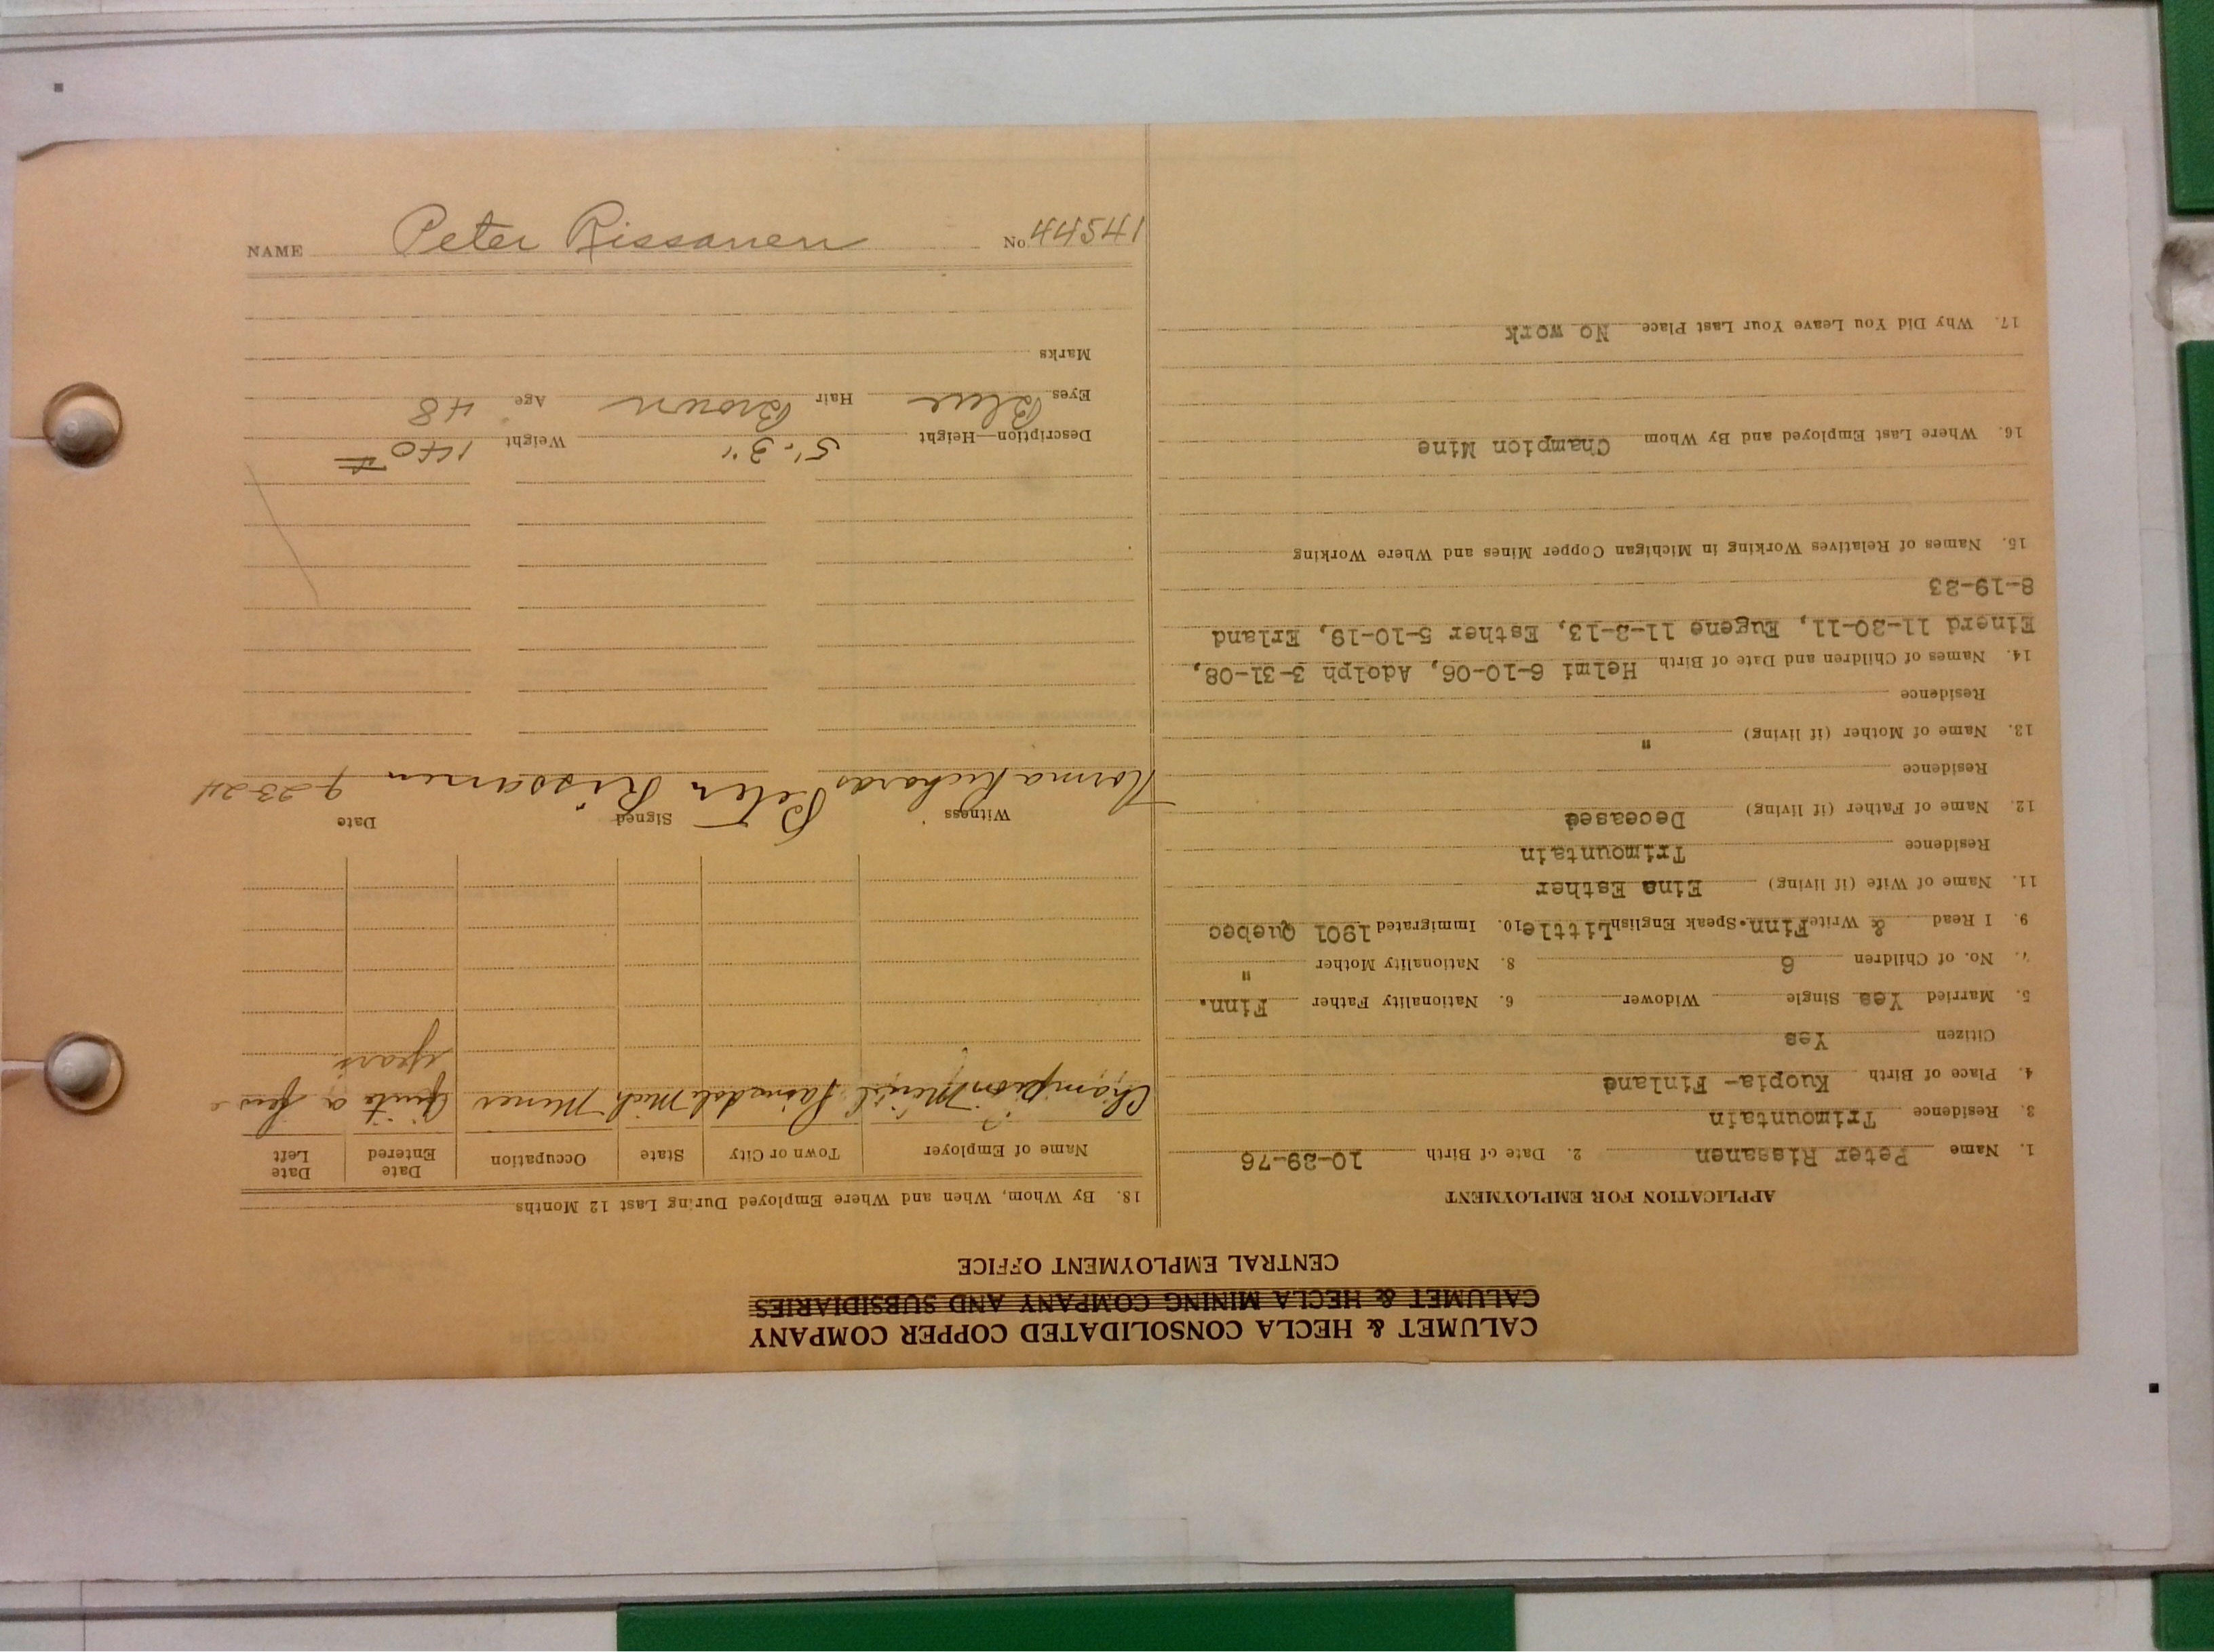 NAME Peter Rissanen No. 44541
CALUMET & HECLA CONSOLIDATED COPPER COMPANY
CALUMET & HECLA MINING COMPANY AND SUBSIDIARIES
CENTRAL EMPLOYMENT OFFICE
APPLICATION FOR EMPLOYMENT
1. Name Peter Rissanen 2. Date of Birth 10-29-76
3. Residence Trimountain
4. Place of Birth Kuopia- Finland
Citizen Yes
5. Married Yes Single Widower 6. Nationality Father Finn.
7. No. of Children 6 8. Nationality Mother "
9. I Read & Write Finn. Speak English Little 10. Immigrated 1901 Quebec
11. Name of Wife (if living) Eina Esther
Residence Trimountain
12. Name of Father (if living) Deceased
Residence
13. Name of Mother (if living) "
Residence
14. Names of Children and Date of Birth Helmi 6-10-06, Adolph 3-31-08,
Einerd 11-20-11, Eugene 11-2-13, Esther 5-10-19, Erland
8-19-23
15. Names of Relatives Working in Michigan Copper Mines and Where Working
16. Where Last Employed and By Whom Champion Mine
17. Why Did You Leave Your Last Place No work
18. By Whom, When and Where Employed During Last 12 Months
Name of Employer Town or City State Occupation Date Entered Date Left
Champion Mine Painesdale Mich Miner Quite a few
years
Witness Signed Date
Norma Richards Peter Rissanen 9-23-24
Description—Height 5'-3" Weight 140 #
Eyes Blue Hair Brown Age 48
Marks